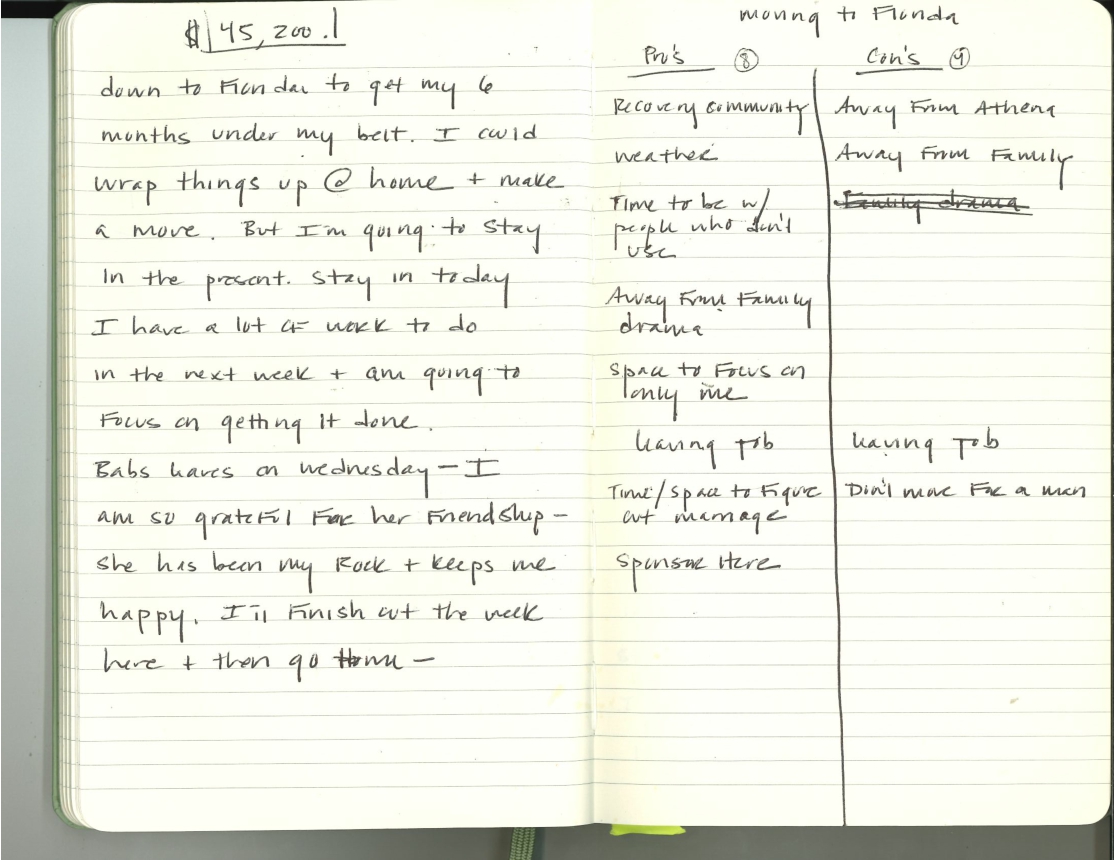 $ 45,200.
down to Florida to get my 6
months under my belt. I could
wrap things up @ home + make
a move. But I'm going to stay
In the present. Stay in today
I have a lot of work to do
in the next week + am going to
Focus on getting it done.
Babs leaves on wednesday - I
am so grateful For her Friendship -
she has been my Rock + keeps me
happy. I'll Finish out the week
here + then go Home -
moving to Florida
Pro's 8
Recovery community
weather
Time to be w/
people who don't
use
Away From Family
drama
Space to Focus on
only me
leaving Job
Time/Space to Figure
out marriage
Sponsor Here
Con's 4
Away From Athena
Away From Family
Family drama
leaving Job
Don't move For a man